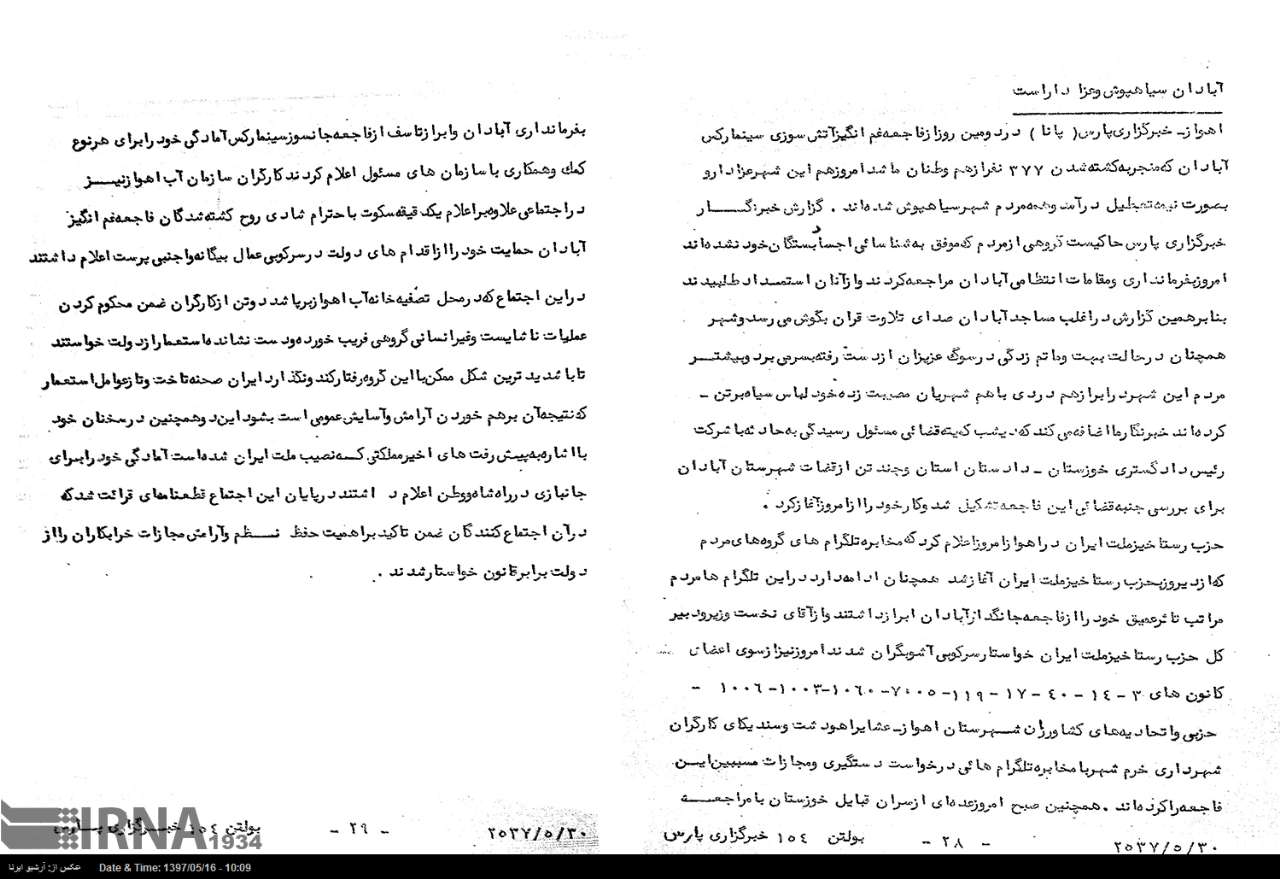 آبادان سیاهپوش وعزاداراست
اهواز ـ خبرگزاری پارس ( پانا ) دردومین روزازفاجعه غم انگیزآتش سوزی سینمارکس
آبادان که منجربه کشته شدن ۳۷۷ نفرازهم وطنان ماشدامروزهم این شهرعزادارو
بصورت نیمه تعطیل درآمدوهمه مردم شهرسیاهپوش شده اند . گزارش خبرنگــــار
خبرگزاری پارس حاکیست گروهی ازمردم که موفق به شناسائی اجسادبستگان خود نشده اند
امروزبفرمانداری ومقامات انتظامی آبادان مراجعه کردند وازآنان استمداد طلبیدند
بنابرهمین گزارش دراغلب مساجدآبادان صدای تلاوت قران بگوش می رسدوشهر
همچنان درحالت بهت وماتم زدگی درسوگ عزیزان ازدست رفته بسرمی بردوبیشتــر
مردم این شهردرابرازهم دردی باهم شهریان مصیبت زده خودلباس سیاه برتن ـ
کرده اند خبرنگارمااضافه می کندکه دیشب کمیته قضائی مسئول رسیدگی به حادثه باشرکت
رئیس دادگستری خوزستان ـ دادستان استان وچندتن ازقضات شهرستان آبادان
برای بررسی جنبه قضائی این فاجعه تشکیل شدوکارخودراازامروزآغازکرد .
حزب رستاخیزملت ایران دراهوازامروزاعلام کردکه مخابره تلگرام های گروه های مردم
که ازدیروزبحزب رستاخیزملت ایران آغازشد همچنان ادامه دارد دراین تلگرام هامردم
مراتب تاثرعمیق خودراازفاجعه جانگدازآبادان ابرازداشتند وازآقای نخست وزیرودبیر
کل حزب رستاخیزملت ایران خواستارسرکوبی آشوبگران شدندامروزنیزازسوی اعضای
کانون های ۳ ـ ۱۴ ـ ۴۰ ـ ۱۷ ـ ۱۱۹ ـ ۷۰۰۵ ـ ۱۰۶۰ ـ ۱۰۰۳ ـ ۱۰۰۶ ـ
حزبی واتحادیه های کشاورزان شهــرستان اهواز ـ عشایراهودشت وسندیکای کارگران
شهرداری خرم شهربامخابره تلگرام هائی درخواست دستگیری ومجازات مسببین ایــن
فاجعه راکرده اند . همچنین صبح امروزعده ای ازسران قبایل خوزستان بامراجعـــه
۲۵۳۷/۵/۳۰ ـ ۲۸ ـ بولتن ۱۵۴ خبرگزاری پارس
بفرمانداری آبادان وابرازتاسف ازفاجعه جانسوزسینمارکس آمادگی خودرابرای هرنوع
کمک وهمکاری باسازمان های مسئول اعلام کردندکارگران سازمان آب اهوازنیــــز
دراجتماعی علاوه براعلام یکدقیقه سکوت باحترام شادی روح کشته شدگان فاجعه غم انگیز
آبادان حمایت خودراازاقدام های دولت درسرکوبی عمال بیگانه واجنبی پرست اعلام داشتند
دراین اجتماع که درمحل تصفیه خانه آب اهوازبرپاشد دوتن ازکارگران ضمن محکوم کردن
عملیات ناشایست وغیرانسانی گروهی فریب خورده ودست نشانده استعمارازدولت خواستند
تاباشدیدترین شکل ممکن بااین گروه رفتارکندونگذاردایران صحنه تاخت وتازعوامل استعمار
که نتیجه آن برهم خوردن آرامش وآسایش عمومی است بشوداین دوهمچنین درسخنان خود
بااشاره به پیش رفت های اخیرمملکتی کــه نصیب ملت ایران شده است آمادگی خودرابرای
جانبازی درراه شاه ووطن اعلام داشتنددرپایان این اجتماع قطعنامه ای قرائت شدکه
درآن اجتماع کنندگان ضمن تاکیدبراهمیت حفظ نــظم وآرامش مجازات خرابکاران راااز
دولت برابرقانون خواستارشدند .
۲۵۳۷/۵/۳۰ ـ ۲۹ ـ بولتن ۱۵۴ خبـرگزاری پـارس
IRNA
1934
عکس از: آرشیو ایرنا Date & Time: 1397/05/16 - 10:09